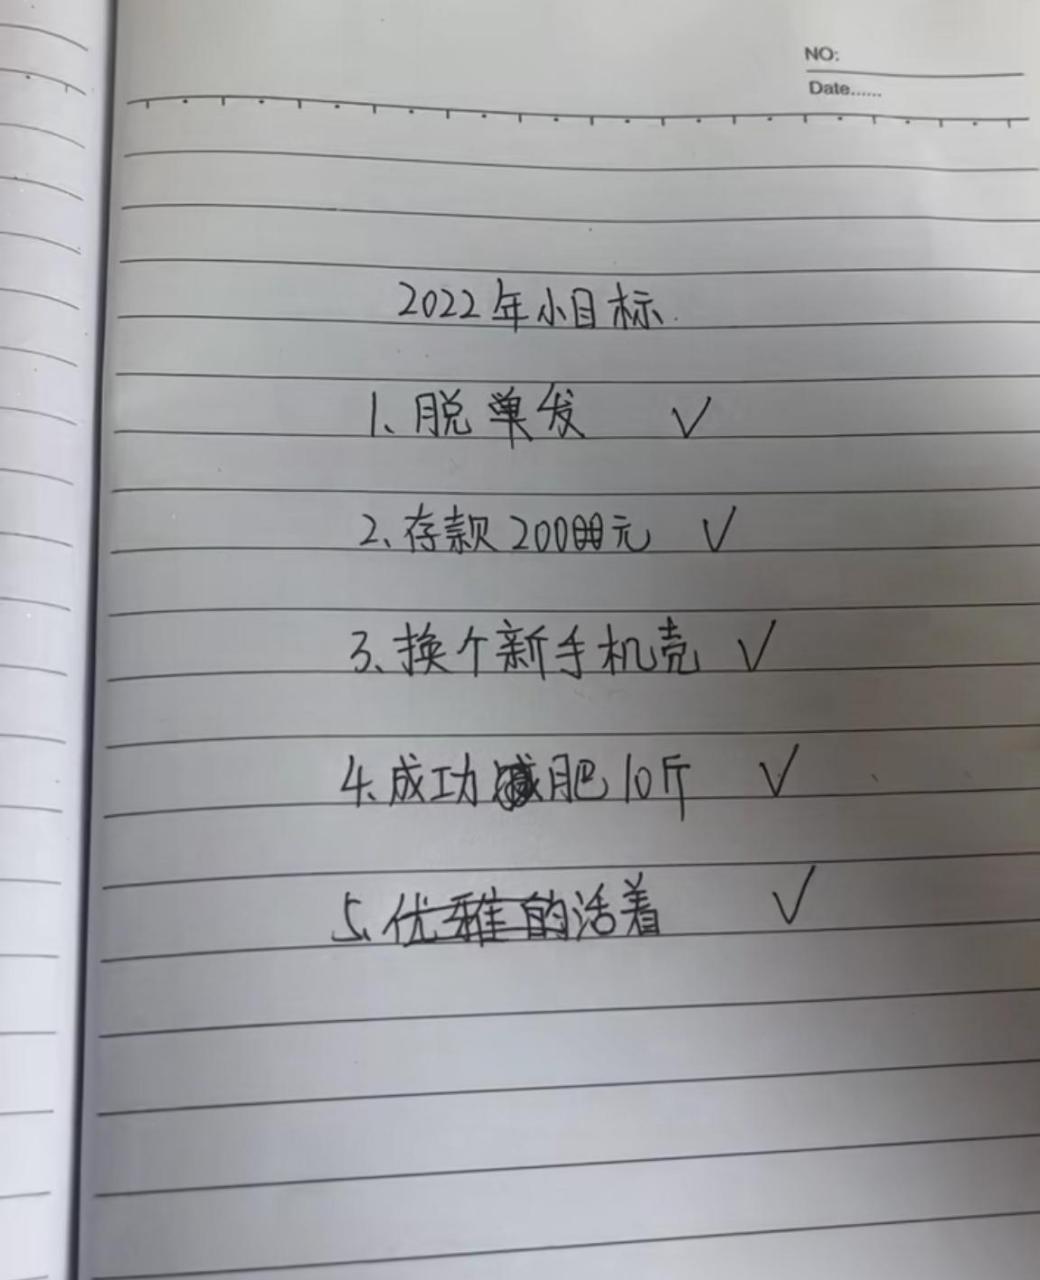 NO:
Date......
2022年小目标
1、脱单发 √
2、存款20000元 √
3、换个新手机壳 √
4、成功减肥10斤 √
5、优雅的活着 √